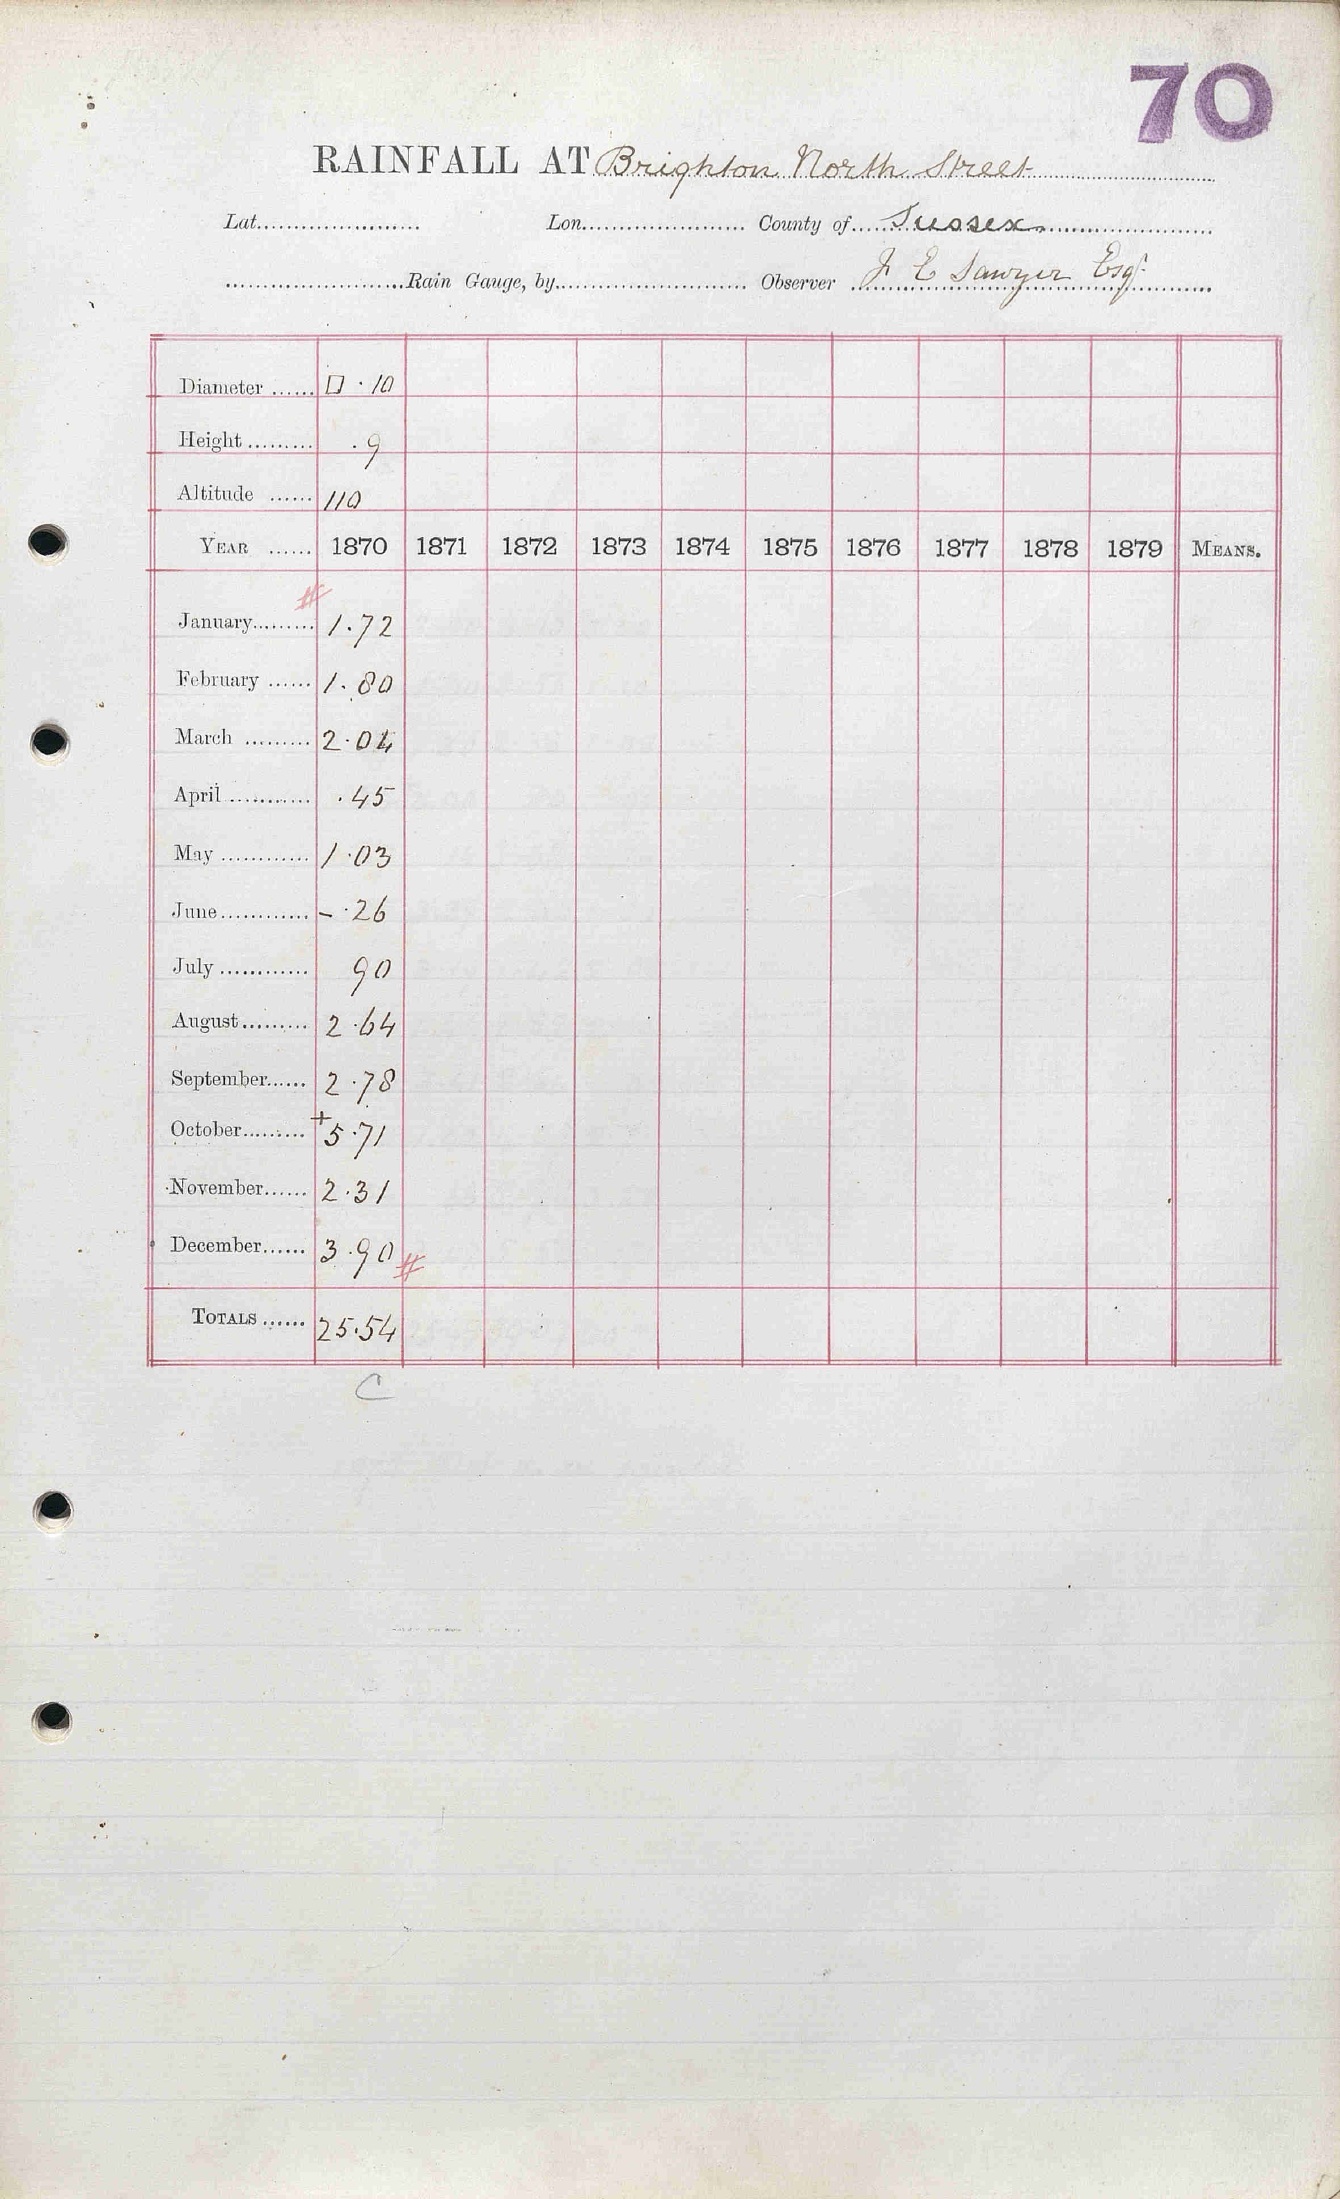 70
RAINFALL AT Brighton North Street
Lat. Lon. County of Sussex
Rain Gauge, by Observer F E Sawyer Esqr
Diameter □ · 10
Height . 9
Altitude 110
YEAR 1870 1871 1872 1873 1874 1875 1876 1877 1878 1879 MEANS.
#
January 1.72
February 1.80
March 2.04
April .45
May 1.03
June - .26
July 90
August 2.64
September 2.78
October + 5.71
November 2.31
December 3.90 #
TOTALS 25.54
C